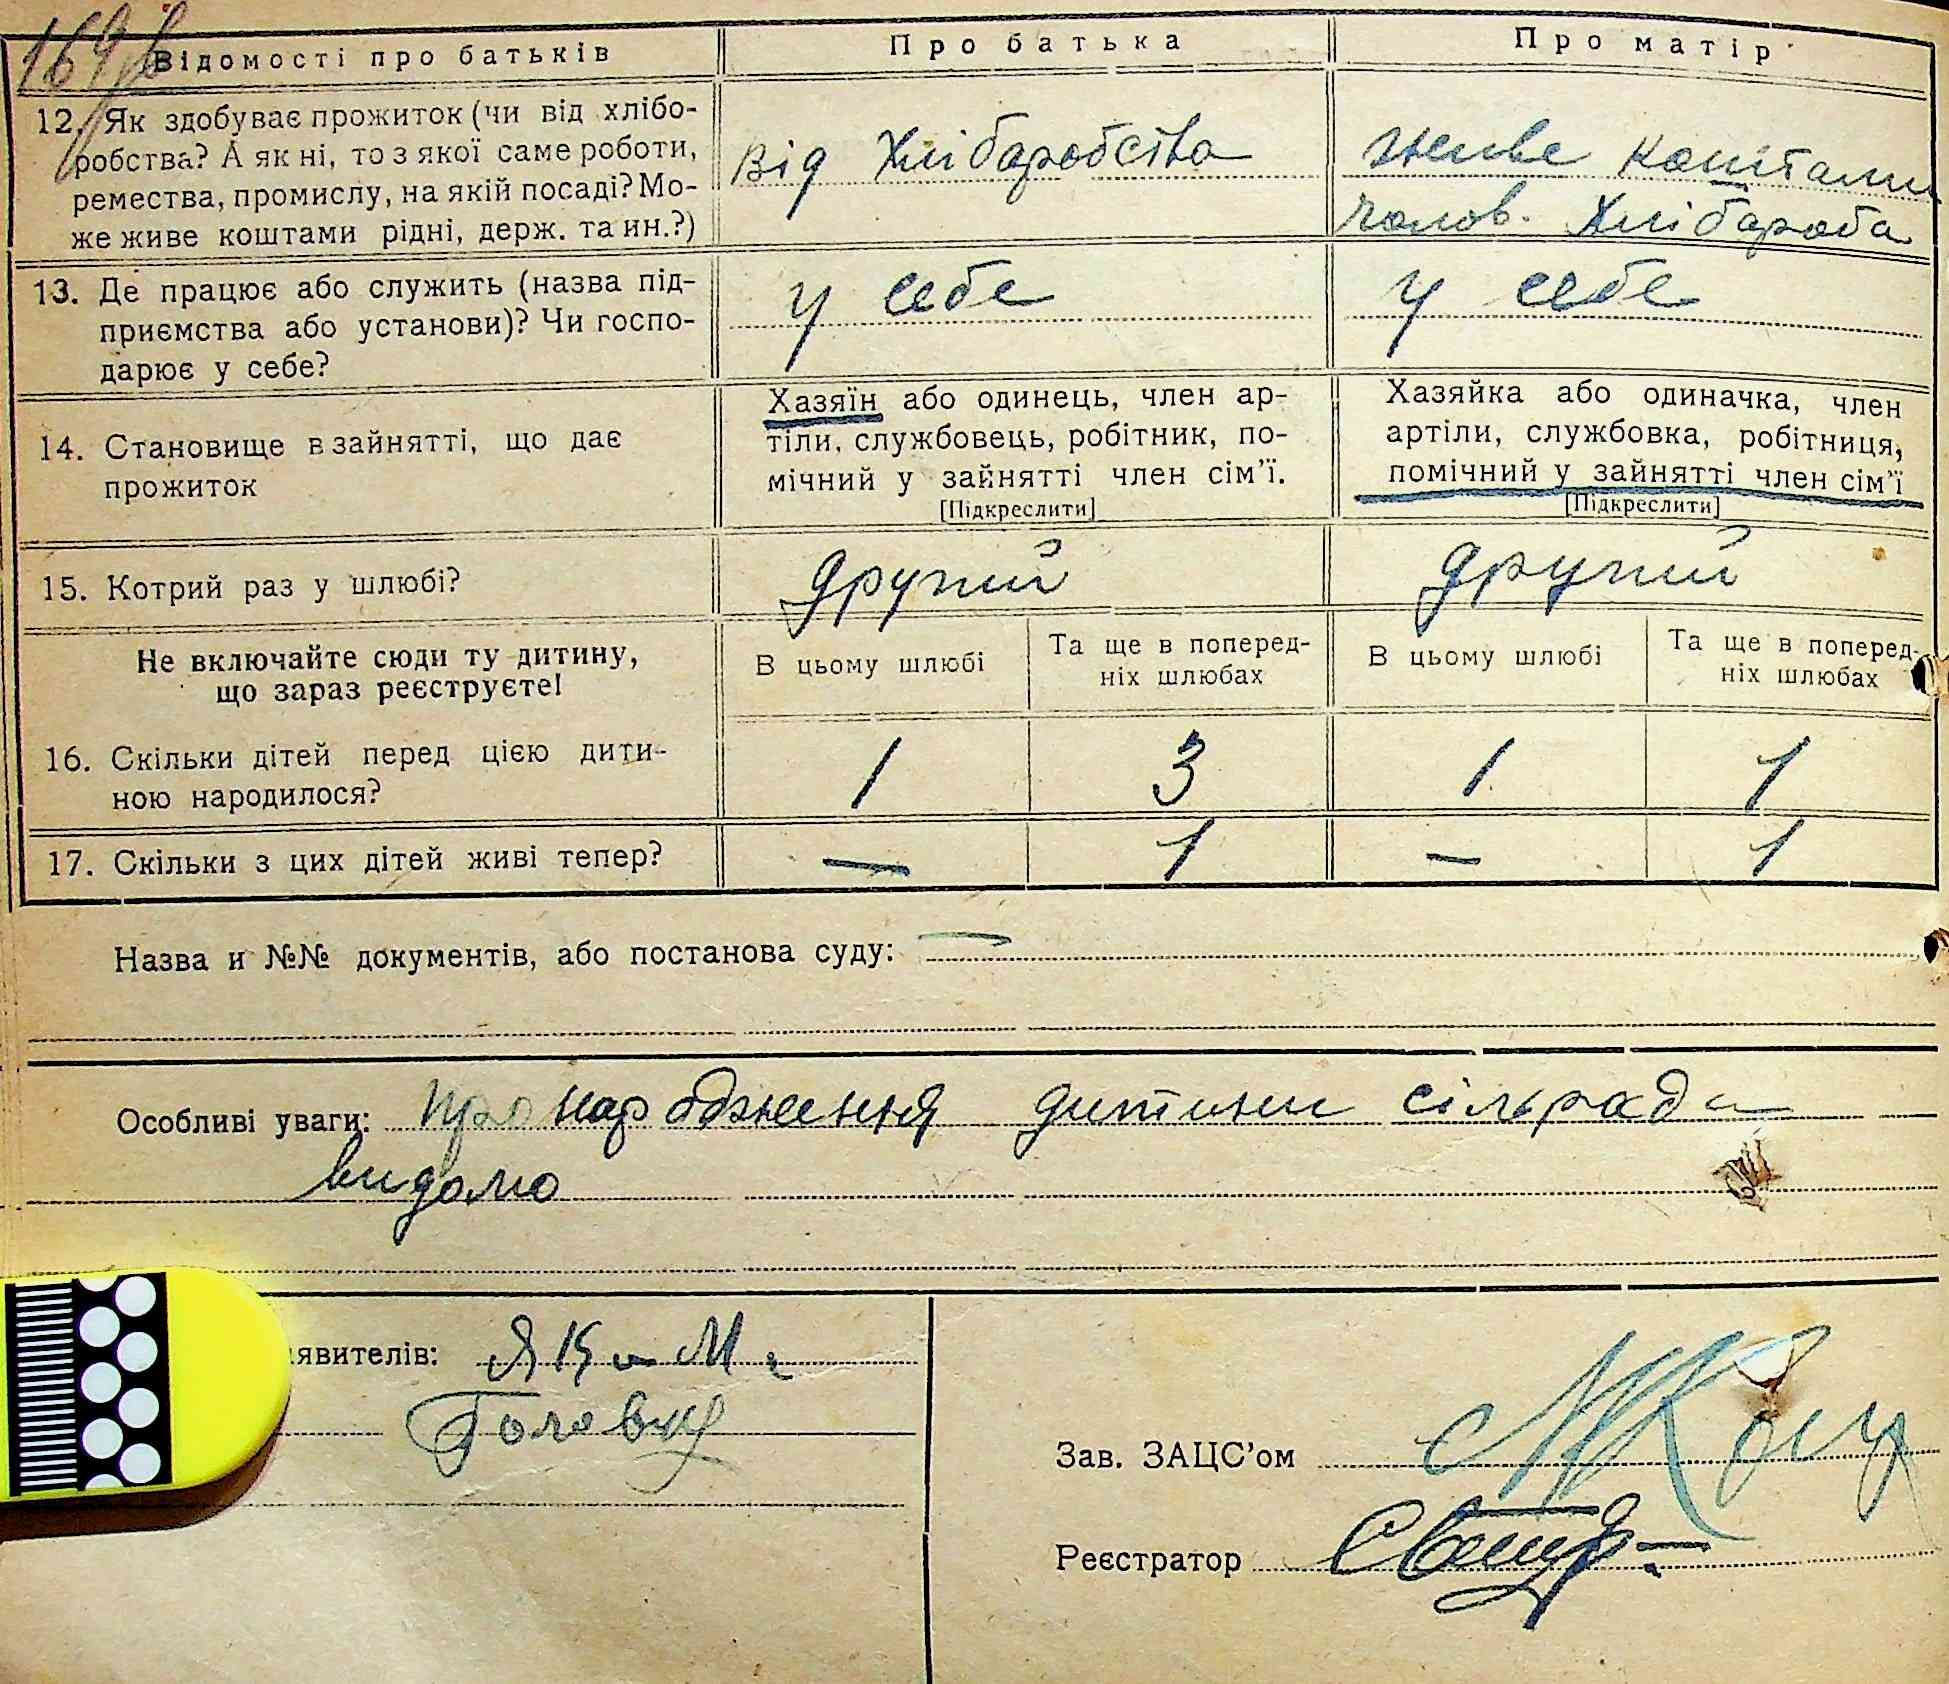 169
Відомості про батьків
Про батька
Про матір
12. Як здобуває прожиток (чи від хлібо-
робства? А як ні, то з якої саме роботи,
ремества, промислу, на якій посаді? Мо-
же живе коштами рідні, держ. та ин.?)
від Хлібаробства
живе коштами
чолов. Хлібароба
13. Де працює або служить (назва під-
приємства або установи)? Чи госпо-
дарює у себе?
у себе
у себе
14. Становище в зайнятті, що дає
прожиток
Хазяїн або одинець, член ар-
тіли, службовець, робітник, по-
мічний у зайнятті член сім’ї.
[Підкреслити]
Хазяйка або одиначка, член
артіли, службовка, робітниця,
помічний у зайнятті член сім’ї
[Підкреслити]
15. Котрий раз у шлюбі?
другий
другий
Не включайте сюди ту дитину,
що зараз реєструєте!
В цьому шлюбі
Та ще в поперед-
ніх шлюбах
В цьому шлюбі
Та ще в поперед-
ніх шлюбах
16. Скільки дітей перед цією дити-
ною народилося?
1
3
1
1
17. Скільки з цих дітей живі тепер?
—
1
—
1
Назва и №№ документів, або постанова суду: —
Особливі уваги: про народження дитини сільрада
видамо
явителів:
Зав. ЗАЦС’ом
Реєстратор